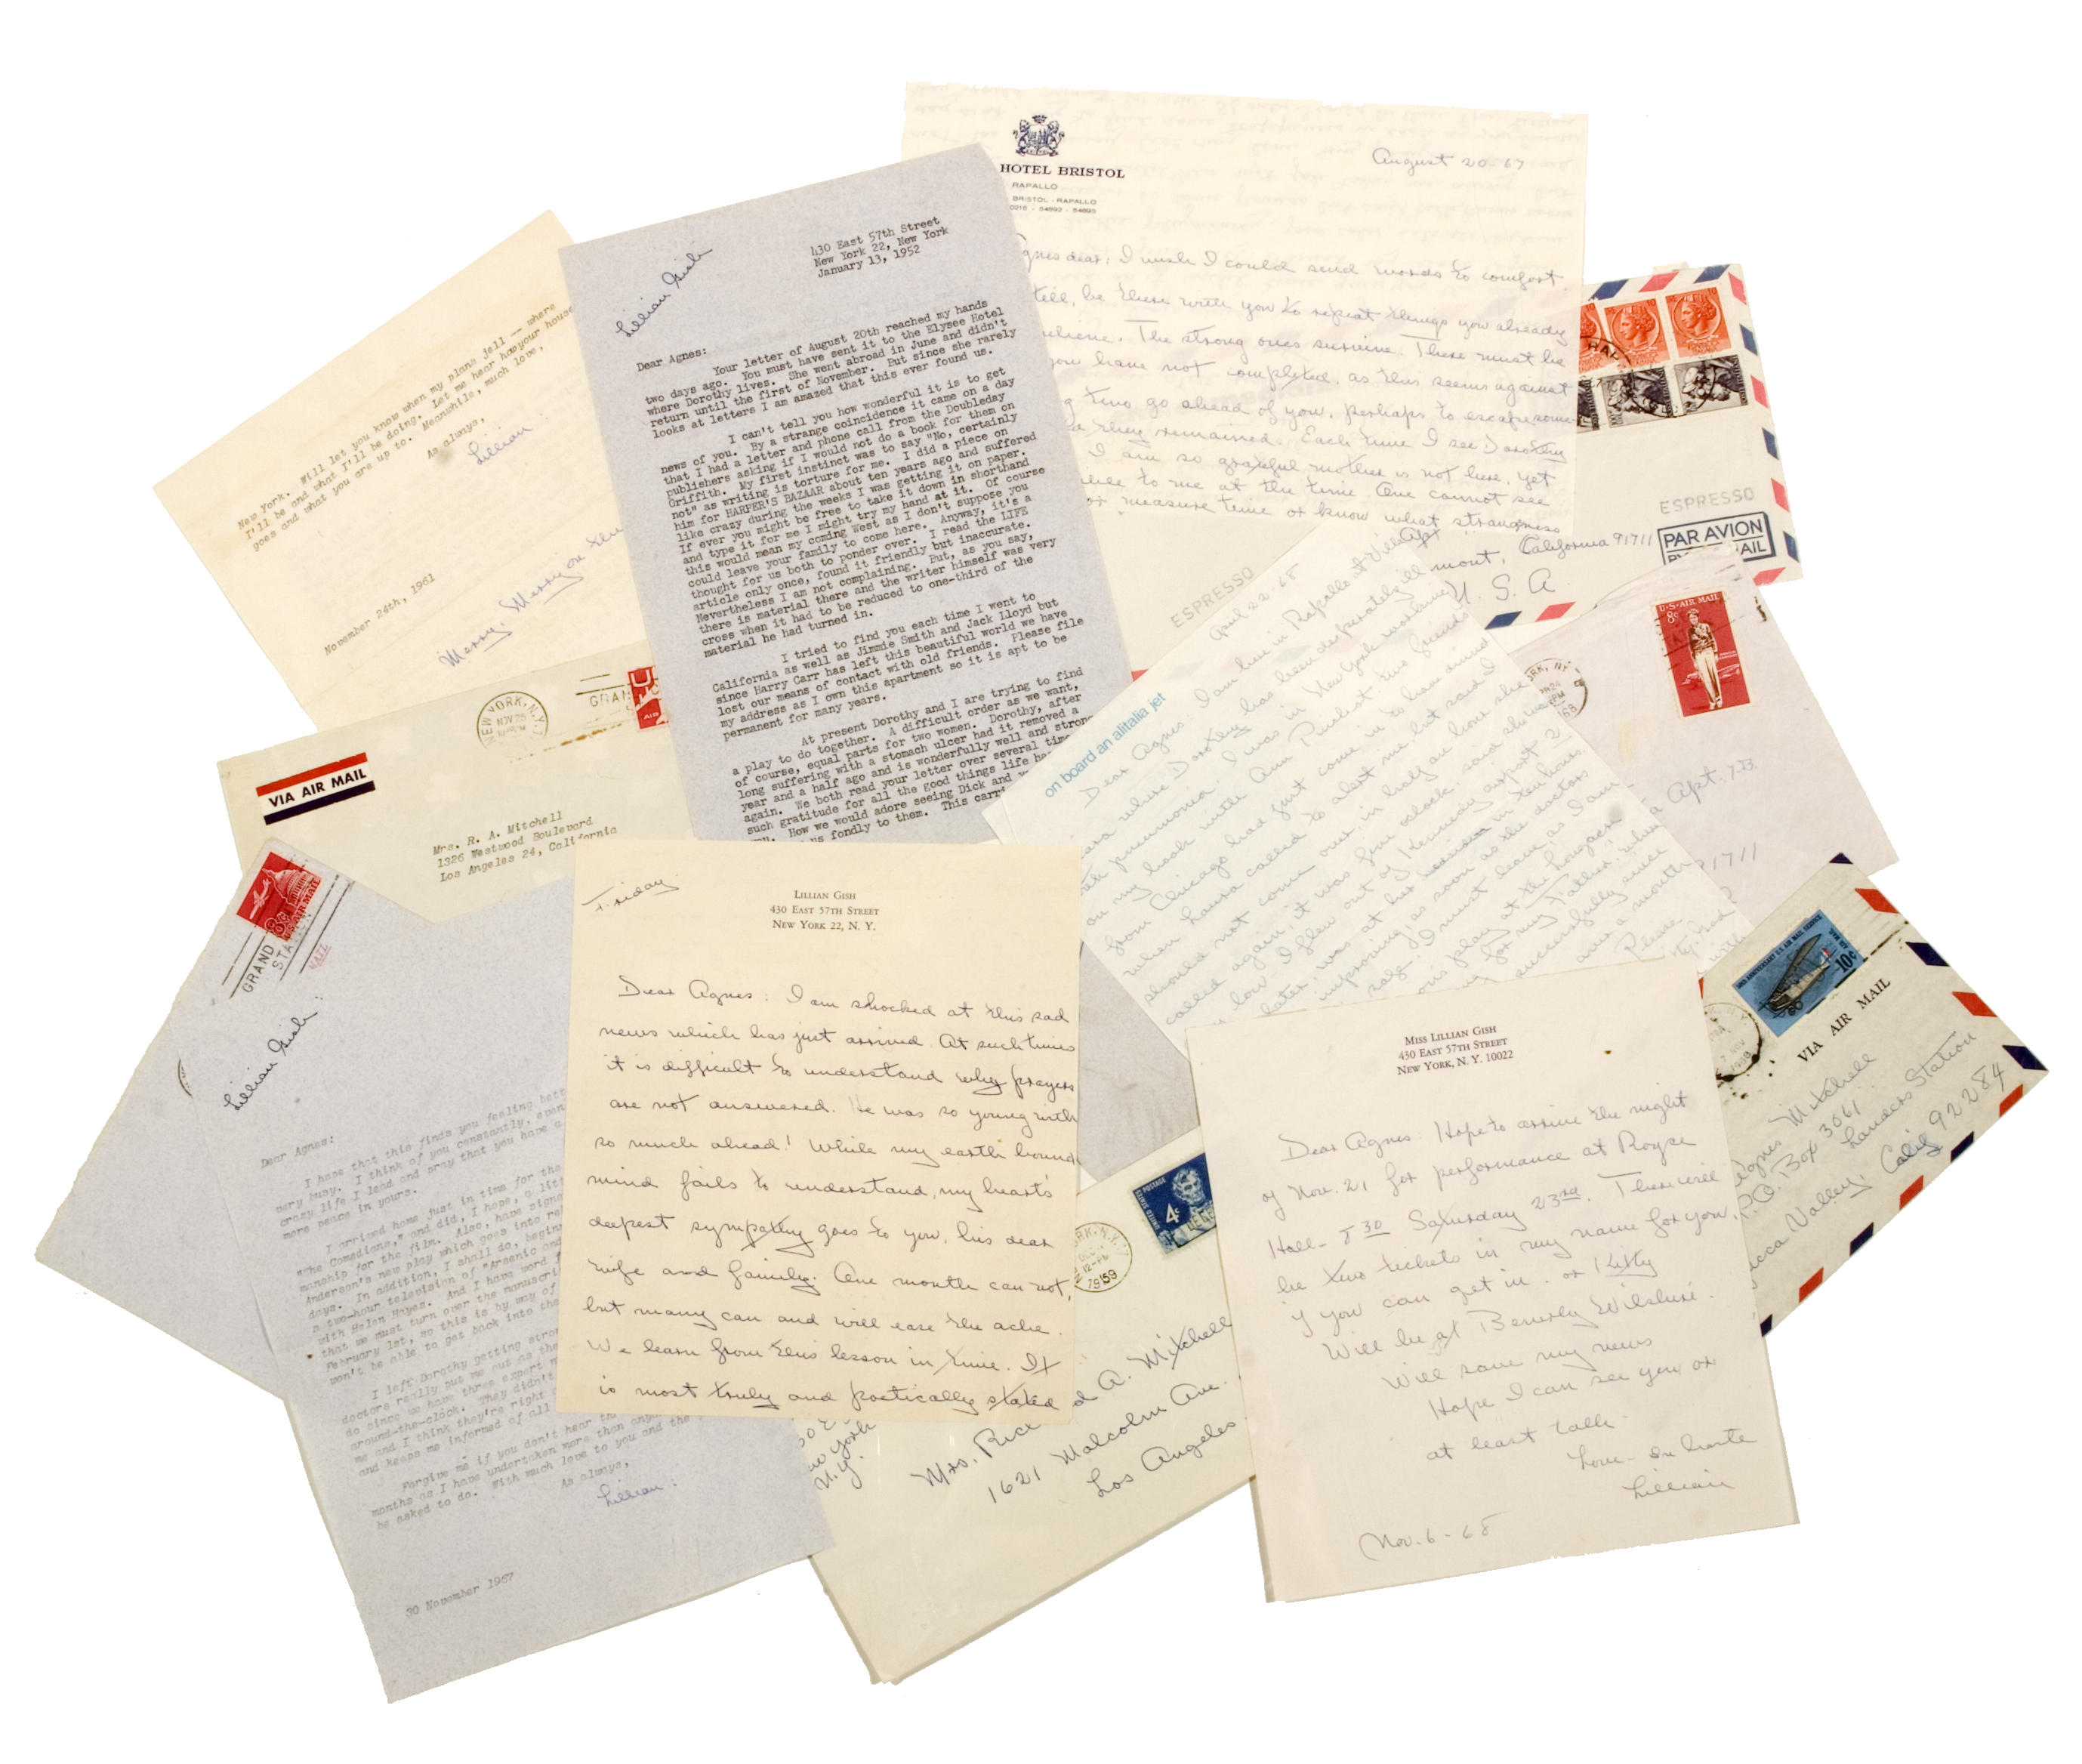 HOTEL BRISTOL
RAPALLO
BRISTOL - RAPALLO
August 20-67
dear: I wish I could send words to comfort.
be there with you to repeat things you already
The strong ones survive. There must be
you have not completed, as this seems against
two go ahead of you, perhaps to escape some
they remained. Each time I see Dorothy
I am so grateful mother is not here, yet
to me at the time. One cannot see
or measure time or know what strangeness
430 East 57th Street
New York 22, New York
January 13, 1952
Lillian Gish
Dear Agnes:
Your letter of August 20th reached my hands
two days ago. You must have sent it to the Elysee Hotel
where Dorothy lives. She went abroad in June and didn't
return until the first of November. But since she rarely
looks at letters I am amazed that this ever found us.
I can't tell you how wonderful it is to get
news of you. By a strange coincidence it came on a day
that I had a letter and phone call from the Doubleday
publishers asking if I would not do a book for them on
Griffith. My first instinct was to say "No, certainly
not" as writing is torture for me. I did a piece on
him for HARPER'S BAZAAR about ten years ago and suffered
like crazy during the weeks I was getting it on paper.
If ever you might be free to take it down in shorthand
and type it for me I might try my hand at it. Of course
this would mean my coming West as I don't suppose you
could leave your family to come here. Anyway, it's a
thought for us both to ponder over. I read the LIFE
article only once, found it friendly but inaccurate.
Nevertheless I am not complaining. But, as you say,
there is material there and the writer himself was very
cross when it had to be reduced to one-third of the
material he had turned in.
I tried to find you each time I went to
California as well as Jimmie Smith and Jack Lloyd but
since Harry Carr has left this beautiful world we have
lost our means of contact with old friends. Please file
my address as I own this apartment so it is apt to be
permanent for many years.
At present Dorothy and I are trying to find
a play to do together. A difficult order as we want,
of course, equal parts for two women. Dorothy, after
long suffering with a stomach ulcer had it removed a
year and a half ago and is wonderfully well and strong
again. We both read your letter over several times
such gratitude for all the good things life
How we would adore seeing Dick and
us fondly to them. This
New York. Will let you know when my plans jell -- where
I'll be and what I'll be doing. Let me hear how your house
goes and what you are up to. Meanwhile, much love,
As always,
Lillian
November 24th, 1961
Merry, Merry
NEW YORK, N.Y.
NOV 25
GRAN
VIA AIR MAIL
Mrs. R. A. Mitchell
1326 Westwood Boulevard
Los Angeles 24, California
ESPRESSO
PAR AVION
California 91711
U. S. A
U.S. AIR MAIL
8c
Apt. 7-B.
91711
ESPRESSO
on board an alitalia jet
April 22-68
Dear Agnes I am here in Rapallo at
where Dorothy has been desperately ill
pneumonia. I was in New York working
on my book with Ann Pinchot two friends
from Chicago had just come in to
when Laura called to alert me but said I
should not come
called again, it was five oclock, said she was
low. I flew out of Kennedy airport 2
later, was at her bedside in ten hours.
improving, as soon as the doctors
I must leave, as I am
play at the Longacre
for my Father, when
successfully since
a month
Please
VIA AIR MAIL
10c
Agnes Mitchell
P.O. Box 3061
Landers Station
Yucca Valley, Calif 92284
8c
U.S. AIR MAIL
GRAND
STA
Lillian Gish
Dear Agnes:
I hope that this finds you feeling
very busy. I think of you constantly, even
crazy life I lead and pray that you have a
more peace in yours.
I arrived home just in time for the
"The Comedians," and did, I hope, a
manship for the film. Also, have
Anderson's new play which goes into
days. In addition, I shall do,
a two-hour television of "Arsenic and
with Helen Hayes. And I have word
that we must turn over the
February 1st, so this is by way of
won't be able to get back into the
I left Dorothy getting
doctors really put me out as the
so since we have three expert
around-the-clock. They didn't
me and I think they're right
and keeps me informed of all
Forgive me if you don't hear
months as I have undertaken more than
be asked to do. With much love to you and the
As always,
Lillian
30 November 1967
Friday
LILLIAN GISH
430 EAST 57TH STREET
NEW YORK 22, N. Y.
Dear Agnes: I am shocked at this sad
news which has just arrived. At such times
it is difficult to understand why prayers
are not answered. He was so young with
so much ahead! While my earth bound
mind fails to understand, my heart's
deepest sympathy goes to you, his dear
wife and family. One month can not,
but many can and will ease the ache.
We learn from this lesson in time. It
is most truly and poetically stated
4c
12-PM
1959
Mrs. A. Mitchell
1621 Malcolm Ave.
Los Angeles
New York
N.Y.
MISS LILLIAN GISH
430 EAST 57TH STREET
NEW YORK, N. Y. 10022
Dear Agnes: Hope to arrive the night
of Nov. 21 for performance at Royce
Hall - 8 30 Saturday 23rd. There will
be two tickets in my name for you,
if you can get in. or Kitty
Will be at Beverly Wilshire.
Will save my news
Hope I can see you or
at least talk -
Love - in haste
Lillian
Nov. 6-68